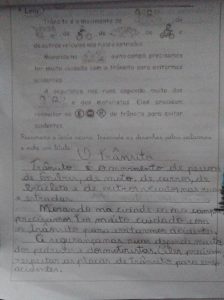 Trânsito é o movimento de
, de , de , de
de outros veículos nas ruas e estradas.
Morando na ou no campo, precisamos
ter muito cuidado com o trânsito para evitarmos
acidentes.
A segurança nas ruas depende muito dos
e dos motoristas. Eles precisam
respeitar as de trânsito para evitar
acidentes.
Reescreva o texto acima trocando os desenhos pelas palavras
e dê um título.
O Trânsito
Trânsito é o movimento de pessoas
de , de moto, de carros, de
bicicleta e de outros veículos nas ruas
e estradas.
Morando na cidade ou no campo
precisamos ter muito cuidado com
o trânsito para evitarmos acidentes.
A segurança nas ruas depende muito
dos pedestres e dos motoristas. Eles precisam
respeitar as placas de trânsito para evitar
acidentes.